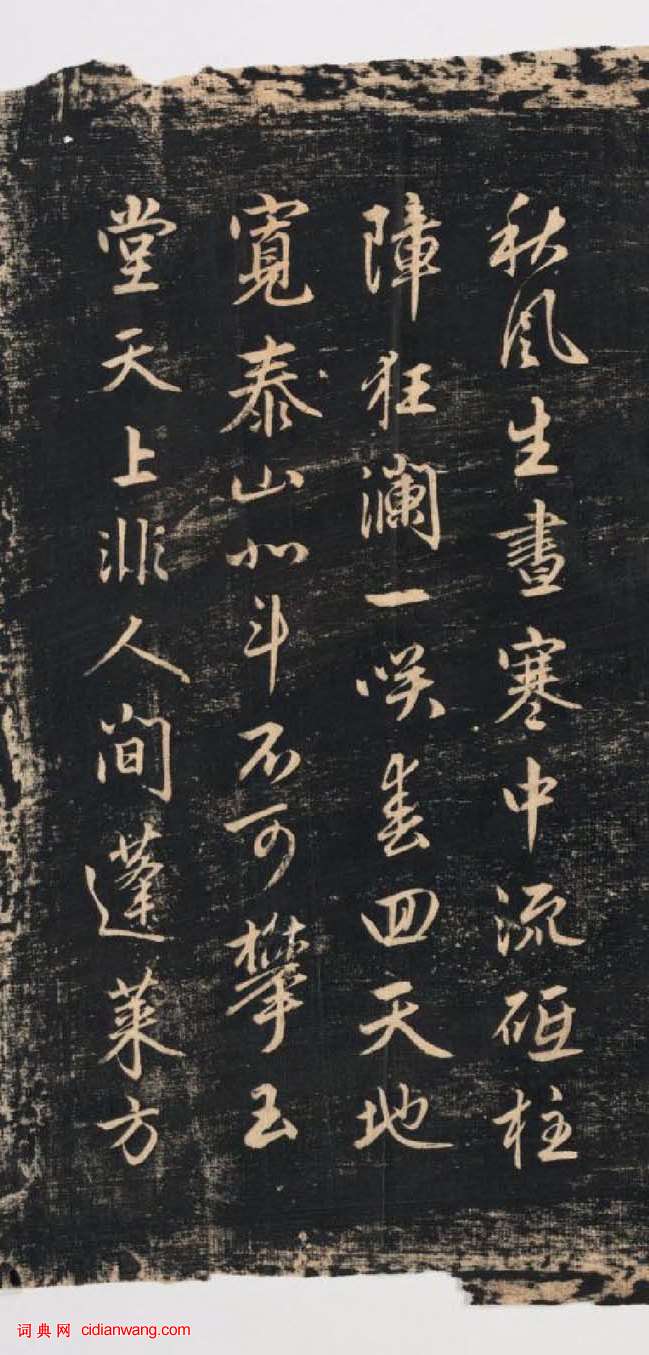 秋風生晝寒中流砥柱
障狂瀾一咲春回天地
寬泰山北斗不可攀玉
堂天上非人間蓬萊方
词典网 cidianwang.com